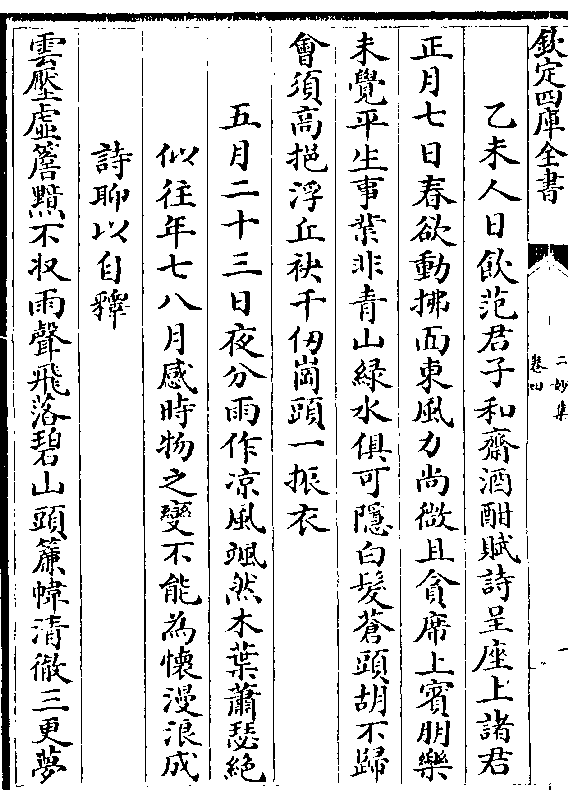 欽定四庫全書
二妙集
卷四
乙未人日飲范君子和齋酒酣賦詩呈座上諸君
正月七日春欲動拂面東風力尚微且貪席上賓朋樂
未覺平生事業非青山緑水俱可隱白髮蒼頭胡不歸
會須高挹浮丘袂千仞崗頭一振衣
五月二十三日夜分雨作凉風颯然木葉蕭瑟絶
似往年七八月感時物之變不能為懷漫浪成
詩聊以自釋
雲壓虚簷黯不収雨聲飛落碧山頭簾幃清徹三更夢